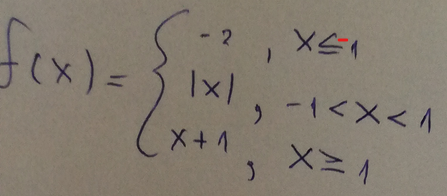 f(x) = { -2 , x ≤ -1
|x| , -1 < x < 1
x+1 , x ≥ 1